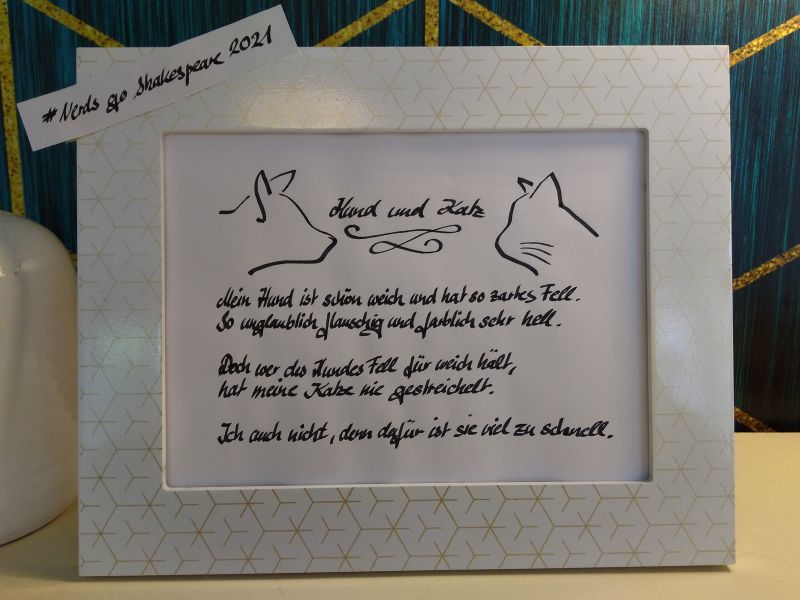 #Nerds go Shakespeare 2021
Hund und Katz
Mein Hund ist schön weich und hat so zartes Fell.
So unglaublich flauschig und farblich sehr hell.
Doch wer des Hundes Fell für weich hält,
hat meine Katze nie gestreichelt.
Ich auch nicht, denn dafür ist sie viel zu schnell.